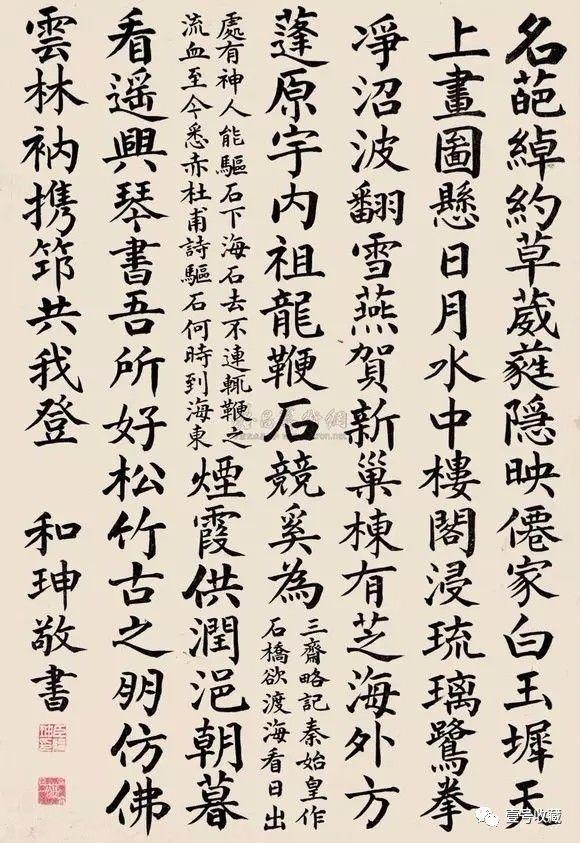 名葩綽約草葳蕤隱映僊家白玉墀天
上畫圖懸日月水中樓閣浸琉璃鷺拳
凈沼波翻雪燕賀新巢棟有芝海外方
蓬原宇内祖龍鞭石競奚為
三齋略記秦始皇作
石橋欲渡海看日出
處有神人能驅石下海石去不連輒鞭之
流血至今悉赤杜甫詩驅石何時到海東
煙霞供潤浥朝暮
看遥興琴書吾所好松竹古之朋仿佛
雲林衲携笻共我登 和珅敬書
壹号收藏